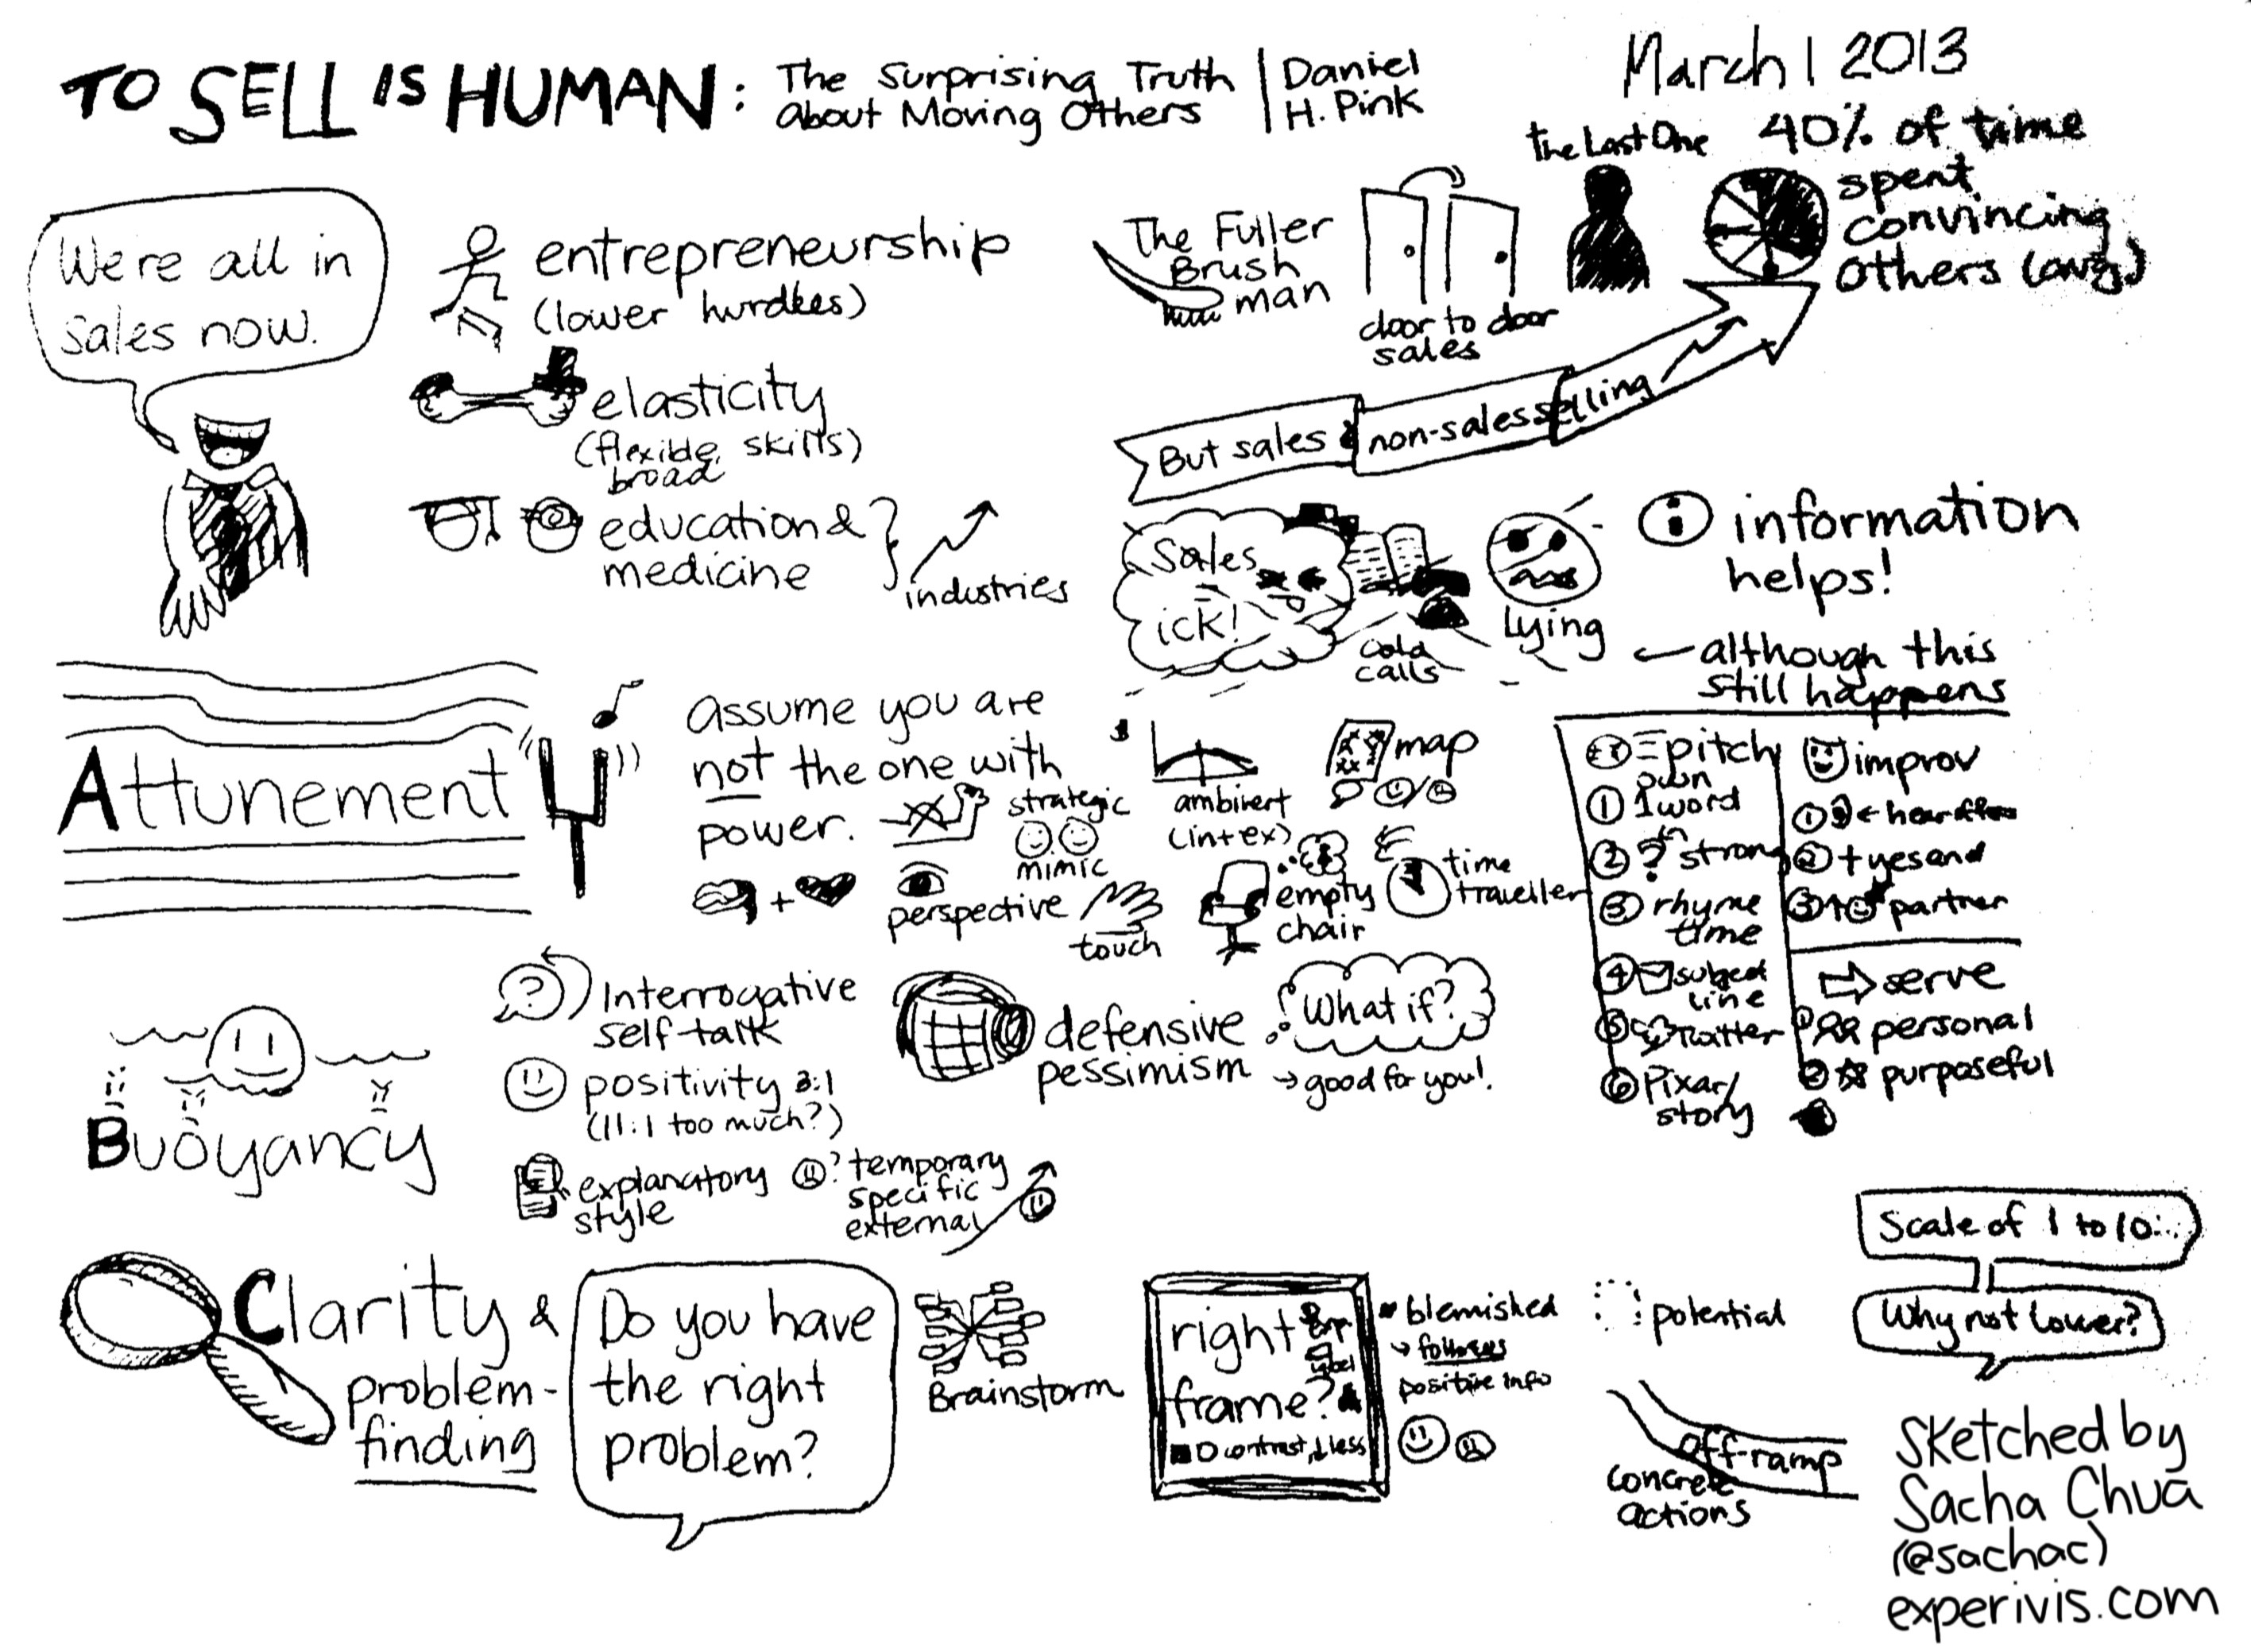 TO SELL IS HUMAN: The Surprising Truth
about Moving Others
Daniel
H. Pink
March 1 2013
We're all in
sales now.
entrepreneurship
(lower hurdles)
elasticity
(flexible, skills)
broad
education &
medicine
industries
The Fuller
Brush
man
door to door
sales
the Last One
40% of time
spent
convincing
others (avg.)
But sales & non-sales selling
Sales
ick!
cold
calls
lying
information
helps!
although this
still happens
Attunement
assume you are
not the one with
power.
strategic
mimic
ambivert
(int+ex)
map
+
perspective
touch
empty
chair
time
traveller
pitch
own
1 1 word
2 ? strong
3 rhyme
time
4 subject
line
5 Twitter
6 Pixar/
story
improv
1 hear offers
2 + yes and
3 partner
serve
1 personal
2 purposeful
Buoyancy
? Interrogative
self-talk
positivity 3:1
(11:1 too much?)
explanatory
style
? temporary
specific
external
defensive
pessimism
What if?
→ good for you!
Clarity &
problem-
finding
Do you have
the right
problem?
Brainstorm
right
frame?
exp
label
contrast, less
blemished
→ follows
positive info
potential
Scale of 1 to 10...
Why not lower?
off-ramp
concrete
actions
Sketched by
Sacha Chua
(@sachac)
experivis.com